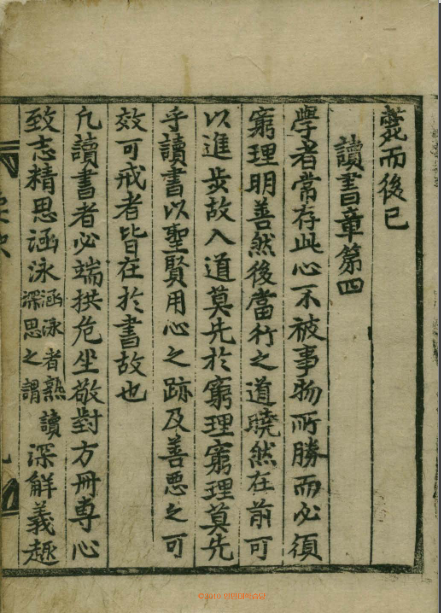 斃而後已
讀書章第四
學者常存此心不被事物所勝而必須
窮理明善然後當行之道曉然在前可
以進步故入道莫先於窮理窮理莫先
乎讀書以聖賢用心之跡及善惡之可
效可戒者皆在於書故也
凡讀書者必端拱危坐敬對方冊專心
致志精思涵泳涵泳者熟讀深思之謂深解義趣